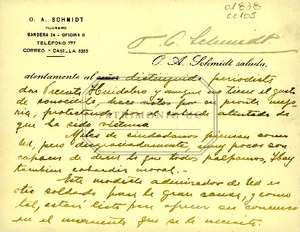 O. A. SCHMIDT
ABOGADO
BANDERA 24 - OFICINA 11
TELÉFONO 777
CORREO - CASILLA
01838
CC105
O. A. Schmidt saluda
atentamente al distinguido periodista
don Vicente Huidobro, y aunque no tiene el gusto
de conocerle, hace votos por su pronta mejoría,
protestando del atentado de
que ha sido víctima
Miles de ciudadanos piensan como
Ud, pero desgraciadamente, muy pocos son
capaces de decir lo que todos palpamos. Hay
tambien cobardía moral.-
Este modesto admirador de Ud es
otro soldado para la gran causa, y como
tal, estará listo para ofrecer su concurso
en el momento que se le necesite.